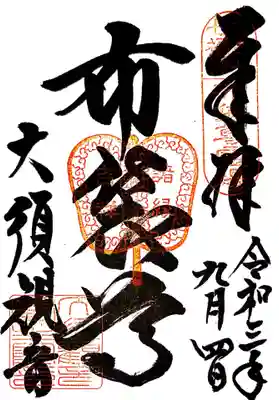 奉拝
令和三年
九月四日
布袋尊
大須観音